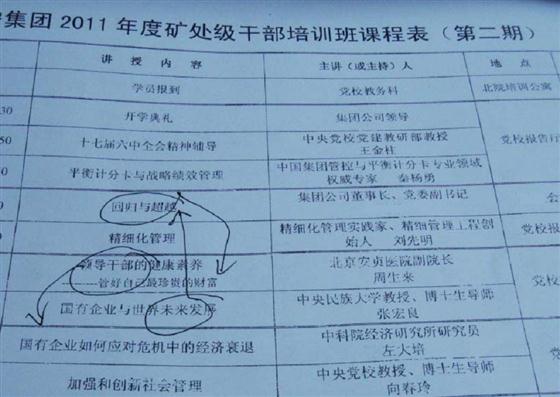 集团 2011 年度矿处级干部培训班课程表（第二期）
讲 授 内 容 主讲（或主持）人 地 点
学员报到 党校教务科 北院培训公寓
30 开学典礼 集团公司领导
50 十七届六中全会精神辅导 中央党校党建教研部教授 党校报告厅
王金柱
平衡计分卡与战略绩效管理 中国集团管控与平衡计分卡专业领域
权威专家 秦杨勇
回归与超越 集团公司董事长、党委副书记 会
精细化管理 精细化管理实践家、精细管理工程创 党校
始人 刘先明
领导干部的健康素养 北京安贞医院副院长
——管好自己最珍贵的财富 周生来
国有企业与世界未来发展 中央民族大学教授、博士生导师
张宏良
国有企业如何应对危机中的经济衰退 中科院经济研究所研究员 党
左大培
加强和创新社会管理 中央党校教授、博士生导师
向春玲